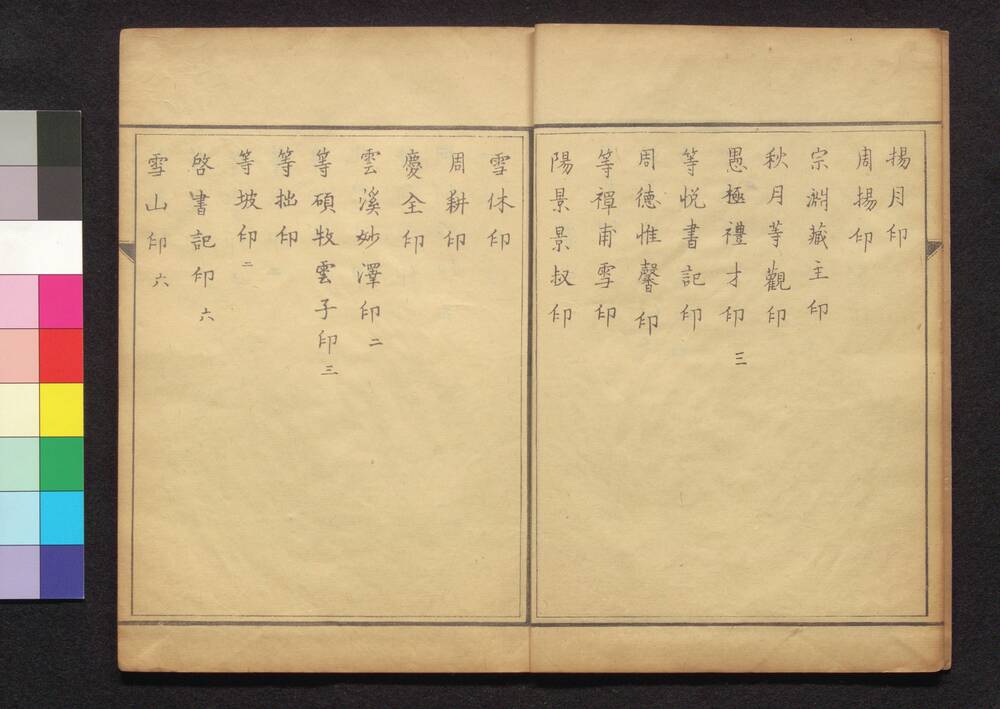 揚月印
周揚印
宗淵藏主印
秋月等觀印
愚極禮才印 三
等悦書記印
周德惟馨印
等禪甫雪印
陽景景叔印
雪休印
周耕印
慶全印
雲溪妙澤印 二
等碩牧雲子印 三
等拙印
等坡印 二
啓書記印 六
雪山印 六